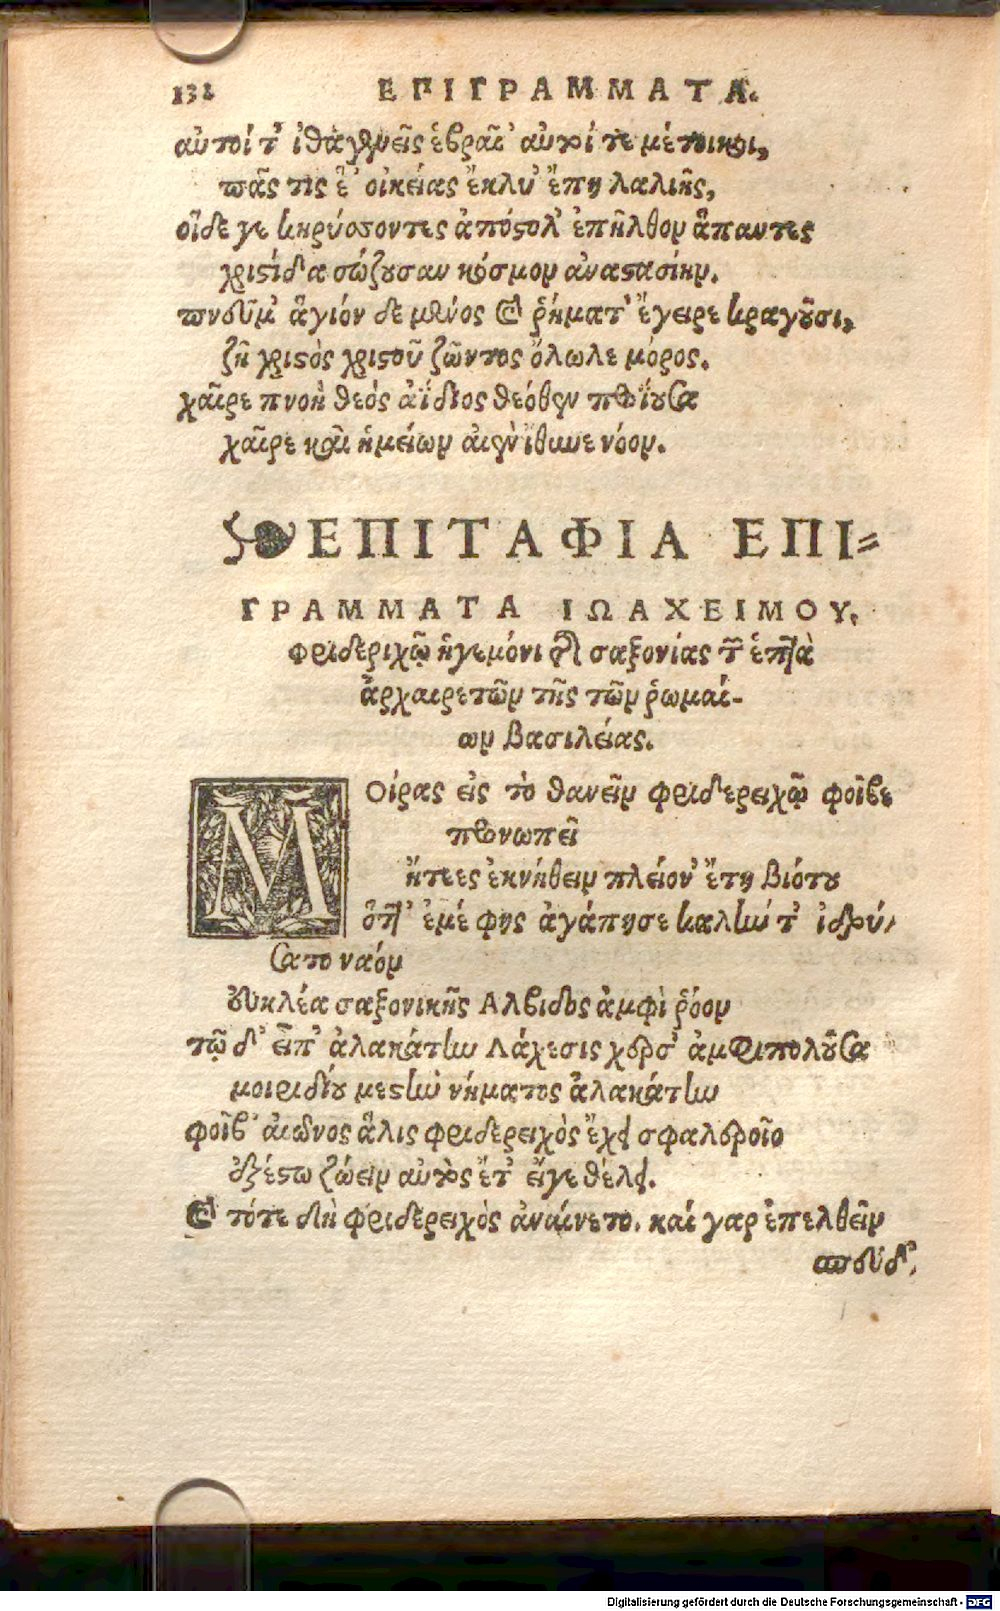 132 ΕΠΙΓΡΑΜΜΑΤΑ.
αὐτοί τ' ἰθαγενεῖς ἑβραῖ' αὐτοί τε μέτοικοι,
πᾶς τις ἑ' οἰκείας ἔκλυ' ἔπη λαλιῆς,
οἵδε γε κηρύσσοντες ἀπόστολ' ἐπῆλθον ἅπαντες
χριστίδα σώζουσαν κόσμον ἀναστασίην.
πνεῦμ' ἅγιόν δε μένος καὶ ῥήματ' ἔγειρε κραγοῦσι,
ζῆ χριστὸς χριστοῦ ζῶντος ὄλωλε μόρος.
χαῖρε πνοὴ θεός ἀΐδιος θεόθεν προϊοῦσα
χαῖρε καὶ ἡμείων αἰὲν ἴθυνε νόον.
ΕΠΙΤΑΦΙΑ ΕΠΙ=
ΓΡΑΜΜΑΤΑ ΙΩΑΧΕΙΜΟΥ.
φριδεριχῷ ἡγεμόνι τῆς σαξονίας τῶν ἑπτὰ
ἀρχαιρετῶν τῆς τῶν ῥωμαί-
ων βασιλείας.
Μοίρας εἰς τὸ θανεῖν φριδερειχῷ φοῖβε
προνωπεῖ
ᾔτεες ἐκνήθειν πλείον' ἔτη βιότου
ὅττι' ἐμέ φης ἀγάπησε καλὴν τ' ἱδρύ-
σατο ναόν
εὐκλέα σαξονικῆς Αλβιδος ἀμφὶ ῥόον
τῷ δ' εἶπ' ἀλακάτην Λάχεσις χερσ' ἀμφιπολοῦσα
μοιριδίου μεστὴν νήματος ἀλακάτην
φοῖβ' αἰῶνος ἅλις φριδερειχὸς ἔχει σφαλεροῖο
ἐξέστω ζώειν αὐτὸς ἔτ' εἴγε θέλει.
καὶ τότε δὴ φριδερειχὸς ἀναίνετο. καί γαρ ἐπελθεῖν
σπεύδ'
Digitalisierung gefördert durch die Deutsche Forschungsgemeinschaft - DFG